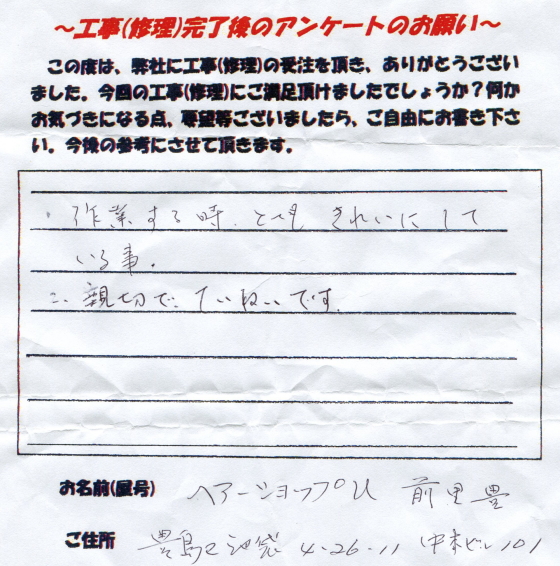 ～工事(修理)完了後のアンケートのお願い～
この度は、弊社に工事(修理)の受注を頂き、ありがとうござい
ました。今回の工事(修理)にご満足頂けましたでしょうか？何か
お気づきになる点、要望等ございましたら、ご自由にお書き下さ
い。今後の参考にさせて頂きます。
・作業する時、とてもきれいにして
いる事。
二、親切で、ていねいです。
お名前(屋号) ヘアーショップU 前里豊
ご住所 豊島区池袋 4-26-11 中本ビル101